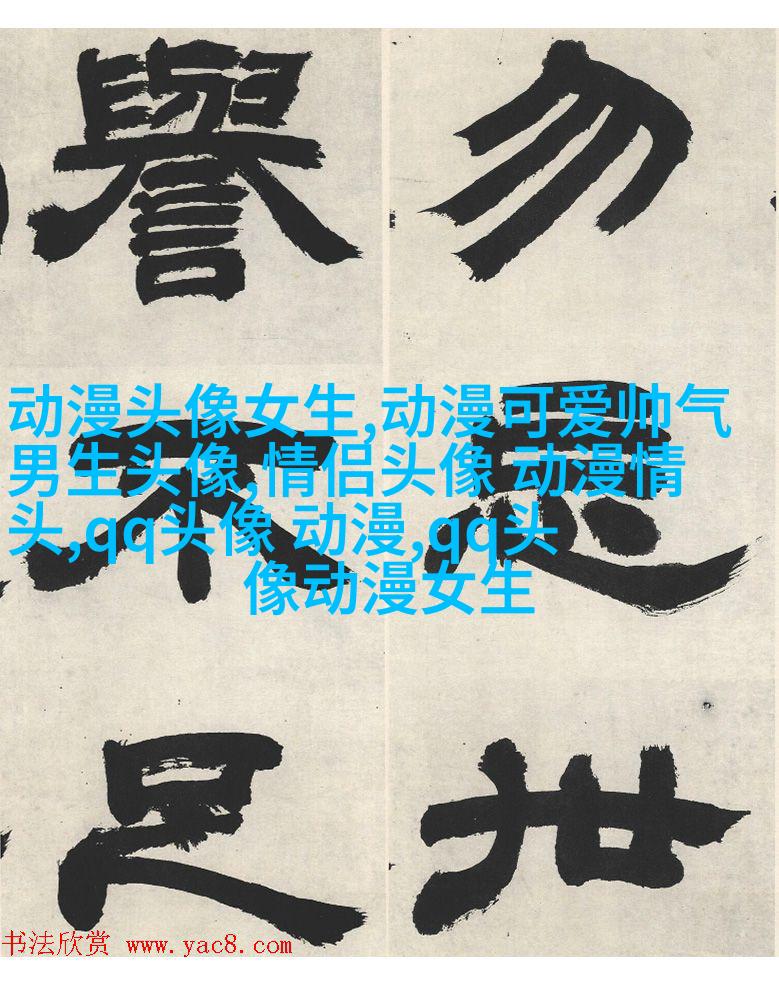 勿世
譽不足
动漫头像女生,动漫可爱帅气
男生头像,情侣头像 动漫情
头,qq头像 动漫,qq头
像动漫女生
书法欣赏 www.yac8.com